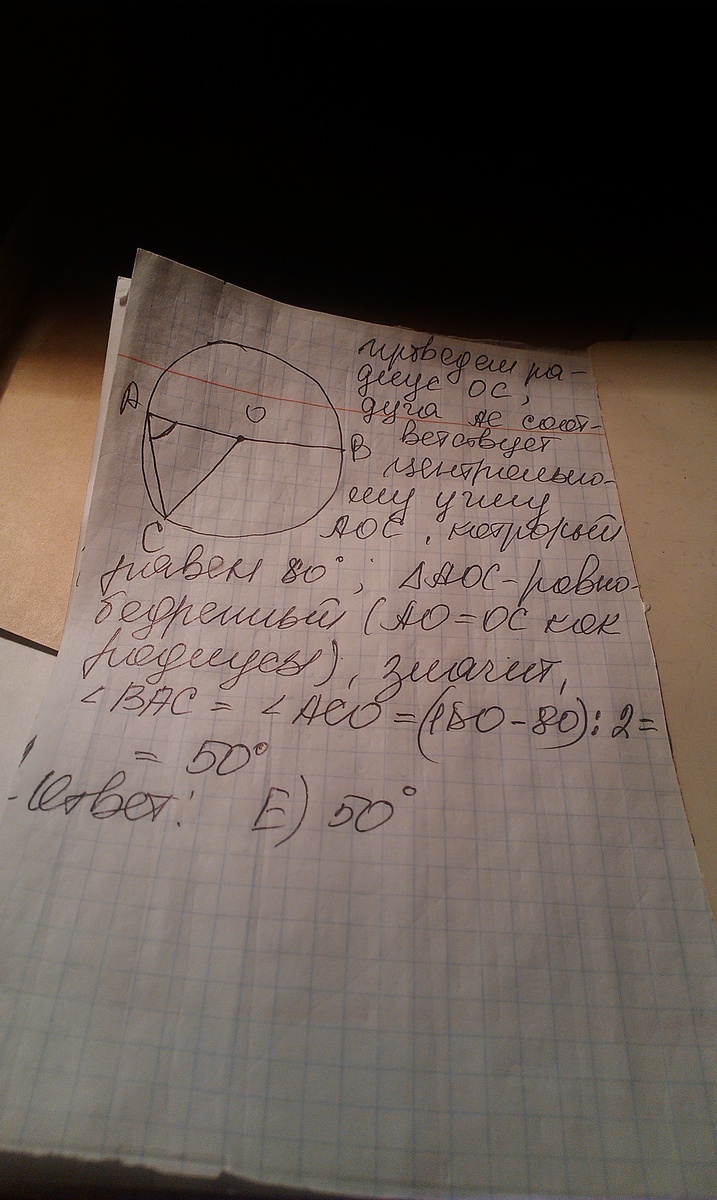 A
O
B
C
проведем ра-
диус OC,
дуга AC соот-
ветствует
центрально-
му углу
AOC, который
равен 80°; ΔAOC - равно-
бедренный (AO = OC как
радиусы), значит,
∠BAC = ∠ACO = (180 - 80) : 2 =
= 50°
Ответ: E) 50°